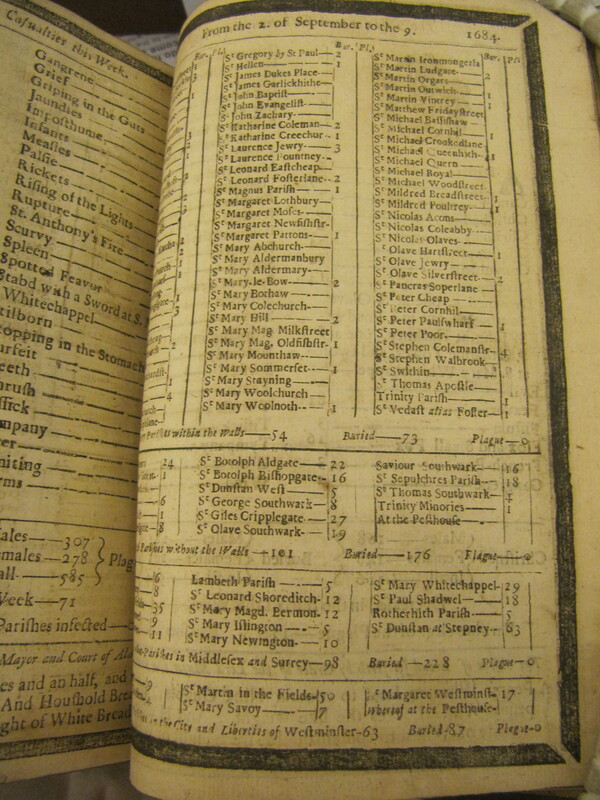 Casualties this Week.
Gangrene
Grief
Griping in the Guts
Jaundies
Imposthume
Infants
Measles
Palsie
Rickets
Rising of the Lights
Rupture
St. Anthony's Fire
Scurvy
Spleen
Spotted Feavor
Stabd with a Sword at S.
Whitechappel
tilborn
topping in the Stomach
urfeit
eeth
hrush
issick
mpany
niting
rms
ales—307
males—278
all—585
Plag
Week—71
Parishes infected—0
Mayor and Court of Al
es and an half, and
And Houshold Brea
ght of White Bread
From the 2. of September to the 9. 1684.
Bur. Pl.
St Gregory by St Paul—2
St Hellen—1
St James Dukes Place
St James Garlickhithe
St John Baptist
St John Evangelist
St John Zachary
St Katharine Coleman—2
St Katharine Creechur—1
St Laurence Jewry—3
St Laurence Pountney
St Leonard Eastcheap
St Leonard Fosterlane—2
St Magnus Parish—1
St Margaret Lothbury
St Margaret Moses
St Margaret Newfishstr
St Margaret Pattons—1
St Mary Abchurch
St Mary Aldermanbury
St Mary Aldermary
St Mary-le-Bow—2
St Mary Bothaw
St Mary Colechurch
St Mary Hill—2
St Mary Mag. Milkstreet
St Mary Mag. Oldfishstr—1
St Mary Mounthaw
St Mary Sommerset—1
St Mary Stayning
St Mary Woolchurch
St Mary Woolnoth—1
Bur. Pl.
St Martin Ironmongerla
St Martin Ludgate—2
St Martin Orgars
St Martin Outwich
St Martin Vintrey—1
St Matthew Fridaystreet
St Michael Bassishaw
St Michael Cornhil—1
St Michael Crookedlane
St Michael Queenhith—1
St Michael Quern
St Michael Royal
St Michael Woodstreet
St Mildred Breadstreet—1
St Mildred Poultrey—1
St Nicolas Acons
St Nicolas Coleabby
St Nicolas Olaves
St Olave Hartstreet—1
St Olave Jewry
St Olave Silverstreet—2
St Pancras Soperlane
St Peter Cheap
St Peter Cornhil
St Peter Paulswharf—1
St Peter Poor
St Stephen Colemanstr—4
St Stephen Walbrook
St Swithin
St Thomas Apostle
Trinity Parish—1
St Vedast alias Foster—1
Parishes within the Walls—54 Buried—73 Plague—0
24 St Botolph Aldgate—22 Saviour Southwark—16
St Botolph Bishopgate—16 St Sepulchres Parish—18
St Dunstan West—5 St Thomas Southwark
St George Southwark—8 Trinity Minories—1
St Giles Cripplegate—27 At the Pesthouse
St Olave Southwark—19
Parishes without the Walls—101 Buried—176 Plague—0
Lambeth Parish—5 St Mary Whitechappel—29
St Leonard Shoreditch—12 St Paul Shadwel—18
35 St Mary Magd. Bermon.—12 Rotherhith Parish—5
St Mary Islington—5 St Dunstan at Stepney—83
11 St Mary Newington—10
Parishes in Middlesex and Surrey—98 Buried—228 Plague—0
St Martin in the Fields—50 St Margaret Westminst—17
St Mary Savoy—7 whereof at the Pesthouse
in the City and Liberties of Westminster—63 Buried—87 Plague—0